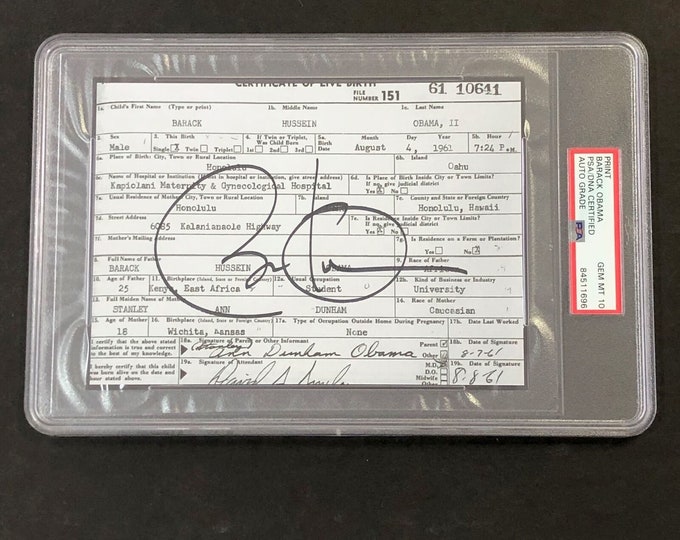 CERTIFICATE OF LIVE BIRTH
FILE NUMBER 151 61 10641
1a. Child's First Name (Type or print) 1b. Middle Name 1c. Last Name
BARACK HUSSEIN OBAMA, II
2. Sex 3. This Birth 4. If Twin or Triplet, Was Child Born 5a. Birth Date Month Day Year 5b. Hour
Male Single X Twin Triplet 1st 2nd 3rd August 4, 1961 7:24 P.M.
6a. Place of Birth: City, Town or Rural Location 6b. Island
Honolulu Oahu
6c. Name of Hospital or Institution (If not in hospital or institution, give street address) 6d. Is Place of Birth Inside City or Town Limits? If no, give judicial district
Kapiolani Maternity & Gynecological Hospital Yes X No
7a. Usual Residence of Mother: City, Town or Rural Location 7b. Island 7c. County and State or Foreign Country
Honolulu Honolulu, Hawaii
7d. Street Address 7e. Is Residence Inside City or Town Limits? If no, give judicial district
6085 Kalanianaole Highway Yes X No
7f. Mother's Mailing Address 7g. Is Residence on a Farm or Plantation?
Yes No X
8. Full Name of Father 9. Race of Father
BARACK HUSSEIN
10. Age of Father 11. Birthplace (Island, State or Foreign Country) Usual Occupation 12b. Kind of Business or Industry
25 Kenya, East Africa Student University
Full Maiden Name of Mother 14. Race of Mother
STANLEY ANN DUNHAM Caucasian
15. Age of Mother 16. Birthplace (Island, State or Foreign Country) 17a. Type of Occupation Outside Home During Pregnancy 17b. Date Last Worked
18 Wichita, Kansas None
I certify that the above stated information is true and correct to the best of my knowledge. 18a. Signature of Parent or Other Informant Parent Other 18b. Date of Signature
(Stanley) Ann Dunham Obama 8-7-61
I hereby certify that this child was born alive on the date and hour stated above. 19a. Signature of Attendant M.D. D.O. Midwife Other 19b. Date of Signature
David A 8-8-61
PRINT
BARACK OBAMA
PSA/DNA CERTIFIED
AUTO GRADE GEM MT 10
PSA 84511696